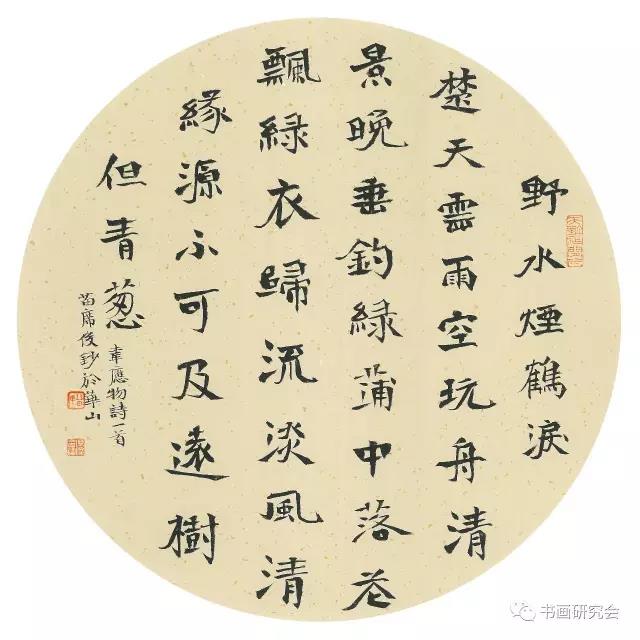 野水煙鶴淚
楚天雲雨空玩舟清
景晚垂釣綠蒲中落花
飄綠衣歸流淡風清
緣源不可及遠樹
但青葱
韋應物詩一首
席俊鈔於華山
书画研究会